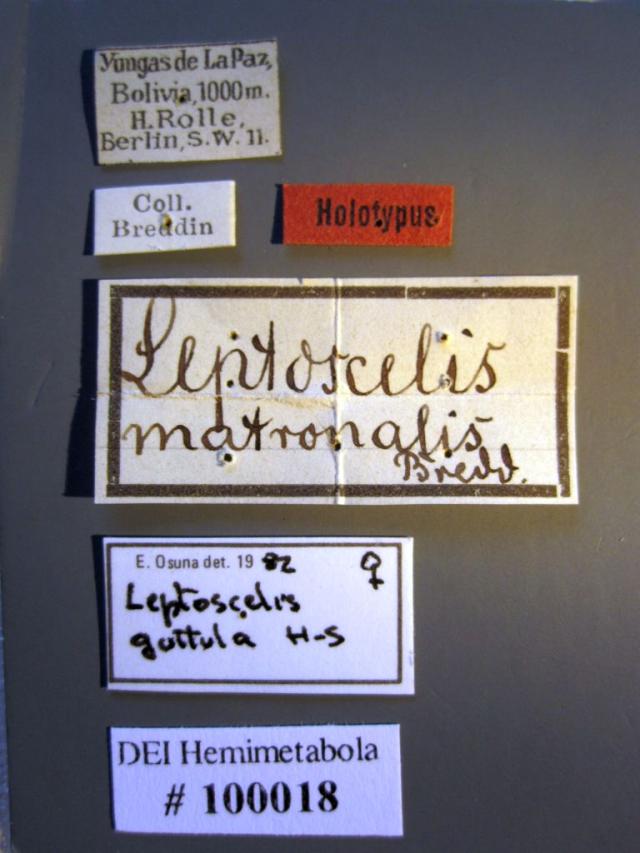 Yungas de La Paz,
Bolivia, 1000 m.
H. Rolle,
Berlin, S.W. 11.
Coll.
Breddin
Holotypus
Leptoscelis
matronalis
Bredd.
E. Osuna det. 19 82 ♀
Leptoscelis
guttula H-S
DEI Hemimetabola
# 100018